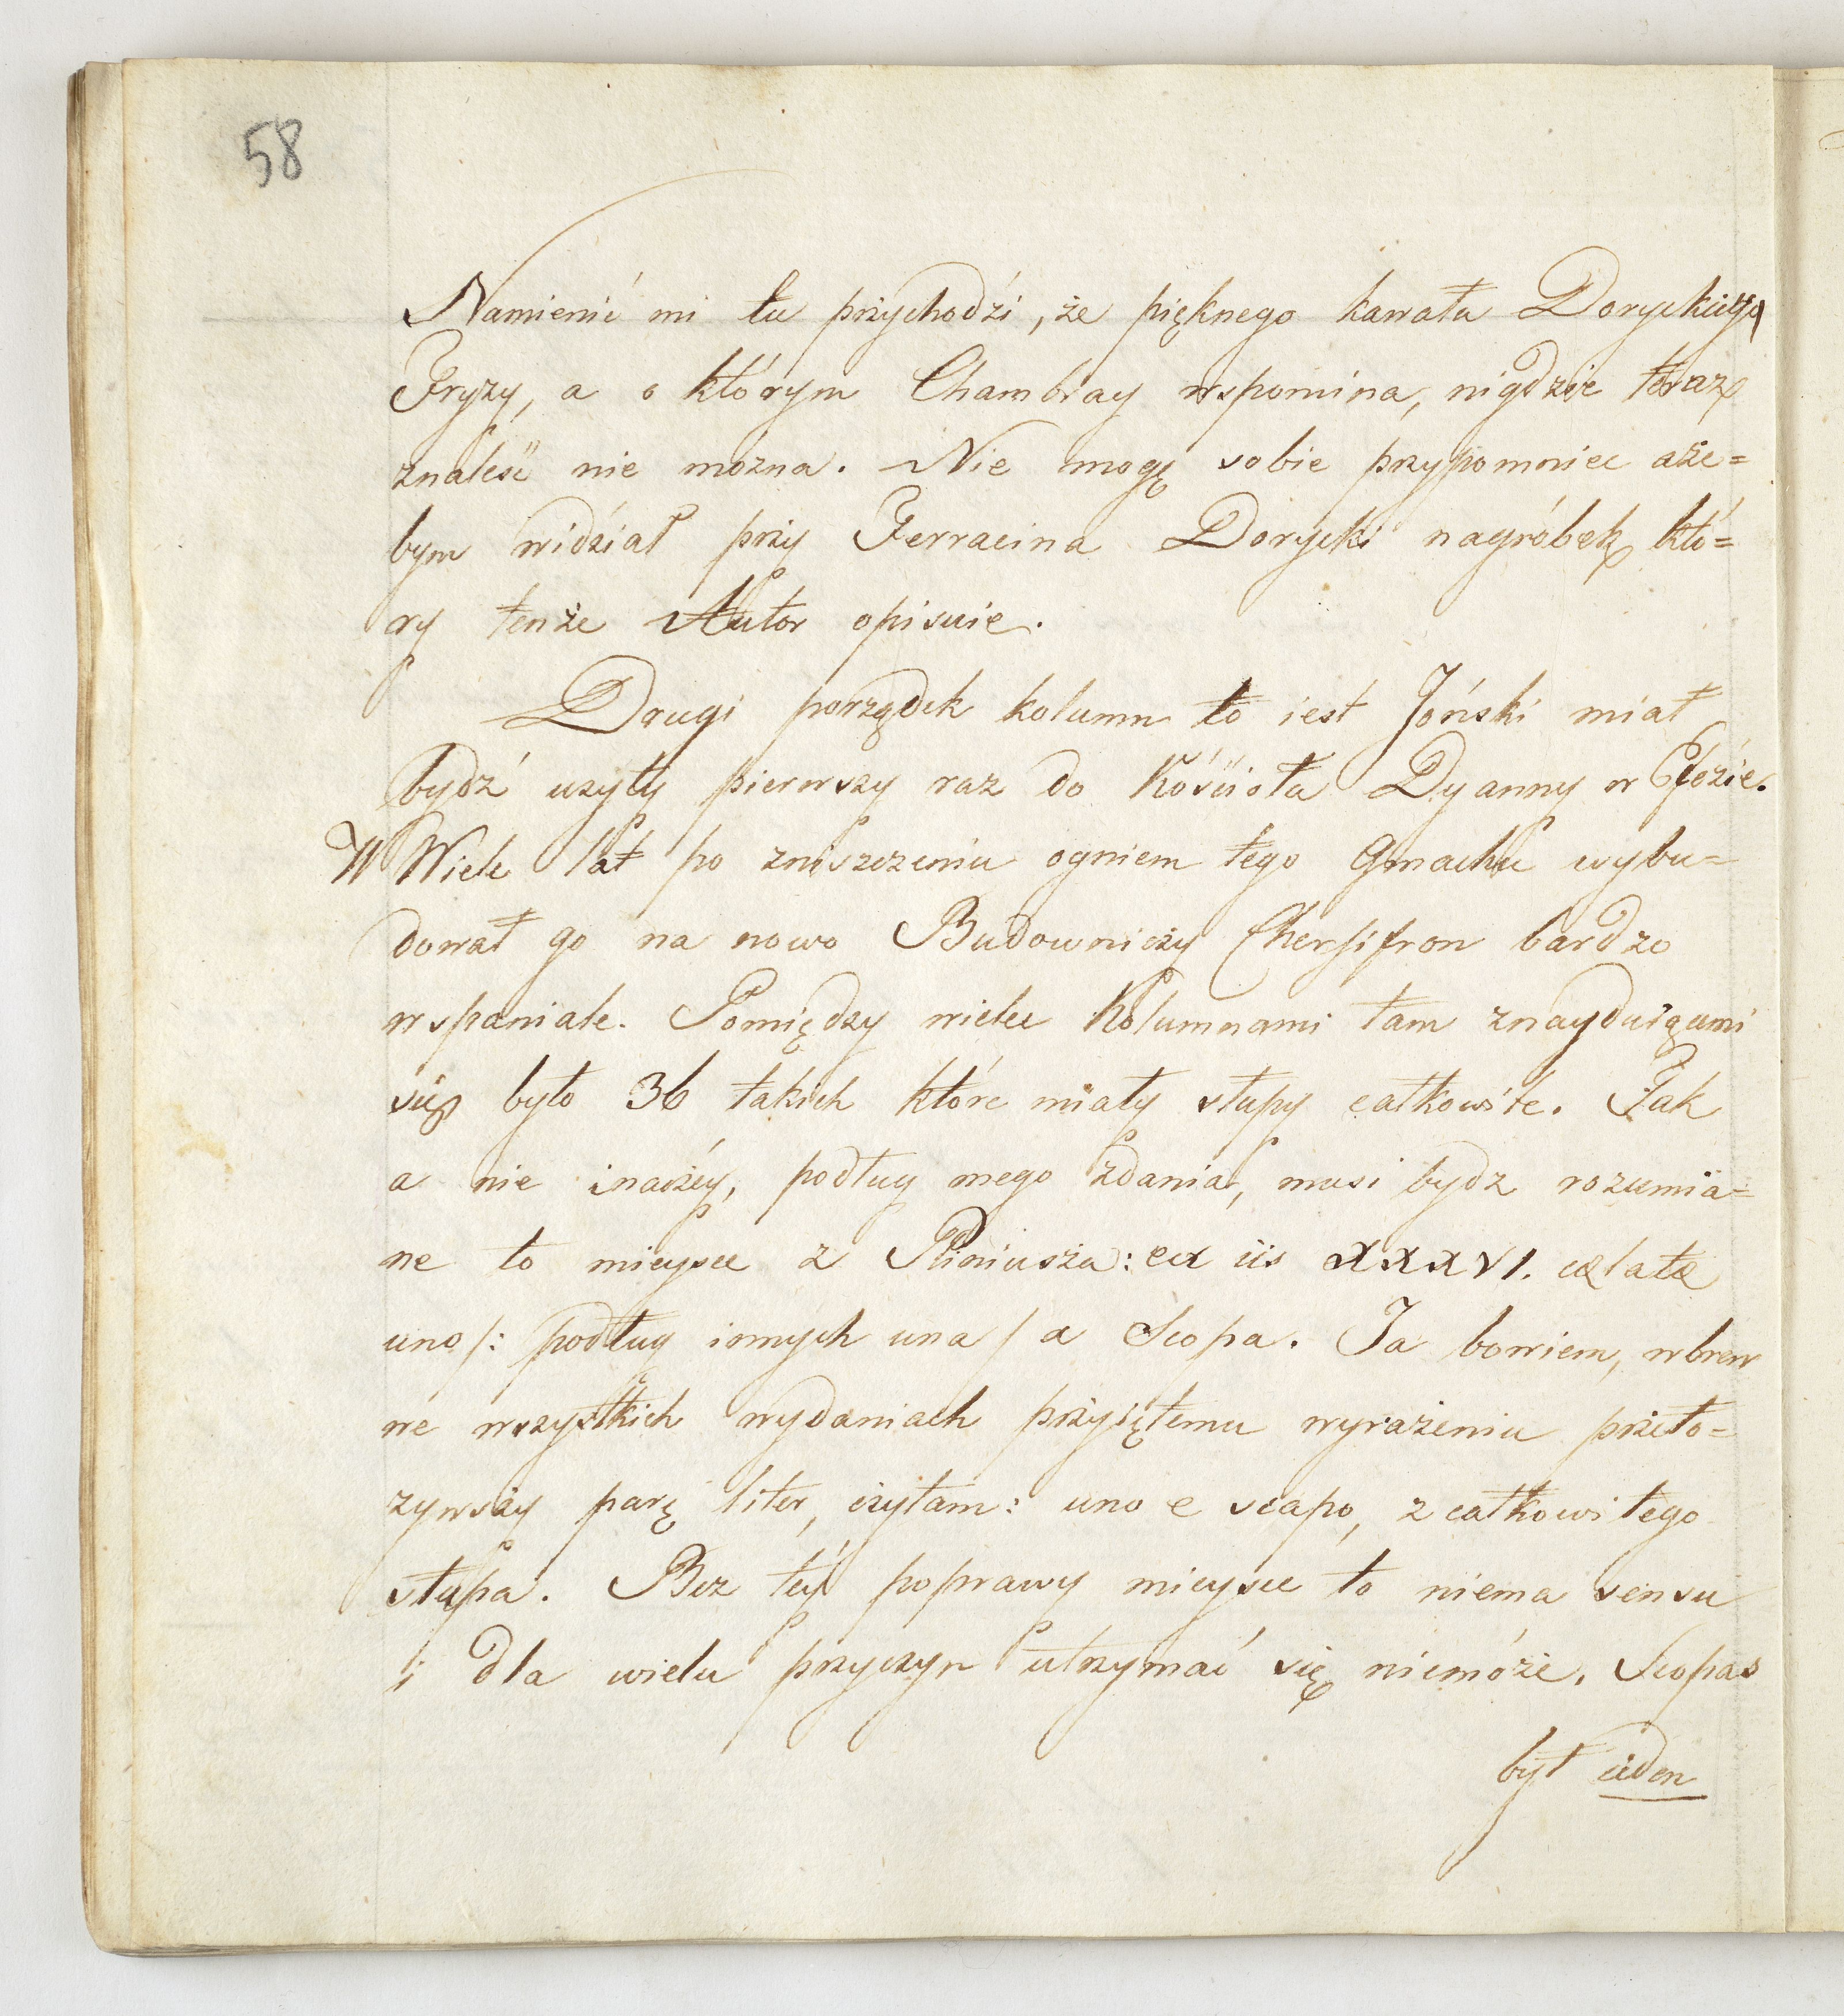 58
Namienić mi tu przychodzi, że pięknego kawała Doryckiego
Fryzy, a o którym Chambray wspomina, nigdzie teraz
znaleść nie można. Nie mogę sobie przypomniec aże=
bym widział przy Terracina Dorycki nagróbek, któ=
ry tenże Autor opisuie.
Drugi porządek kolumn to iest Joński miał
bydź użyty pierwszy raz do Kościoła Dyanny w Efezie.
W Wiele lat po zniszczeniu ogniem tego Gmachu wybu=
dował go na nowo Budowniczy Chersifron bardzo
wspaniale. Pomiędzy wielu Kolumnami tam znayduiącemi
się było 36 takich które miały słupy całkowite. Tak
a nie inaczéy, podług mego zdania, musi bydz rozumia=
ne to mieysce z Pliniusza: ex iis XXXVI. cælatæ
uno /: podług innych una / a Scopa. Ja bowiem, wbrew
we wszystkich wydaniach przyiętemu wyrażeniu przeło=
żywszy parę liter, czytam: uno e scapo, z całkowitego
słupa. Bez téy poprawy mieysce to niema sensu
i dla wielu przyczyn utrzymać się niemóże. Scopas
był ieden